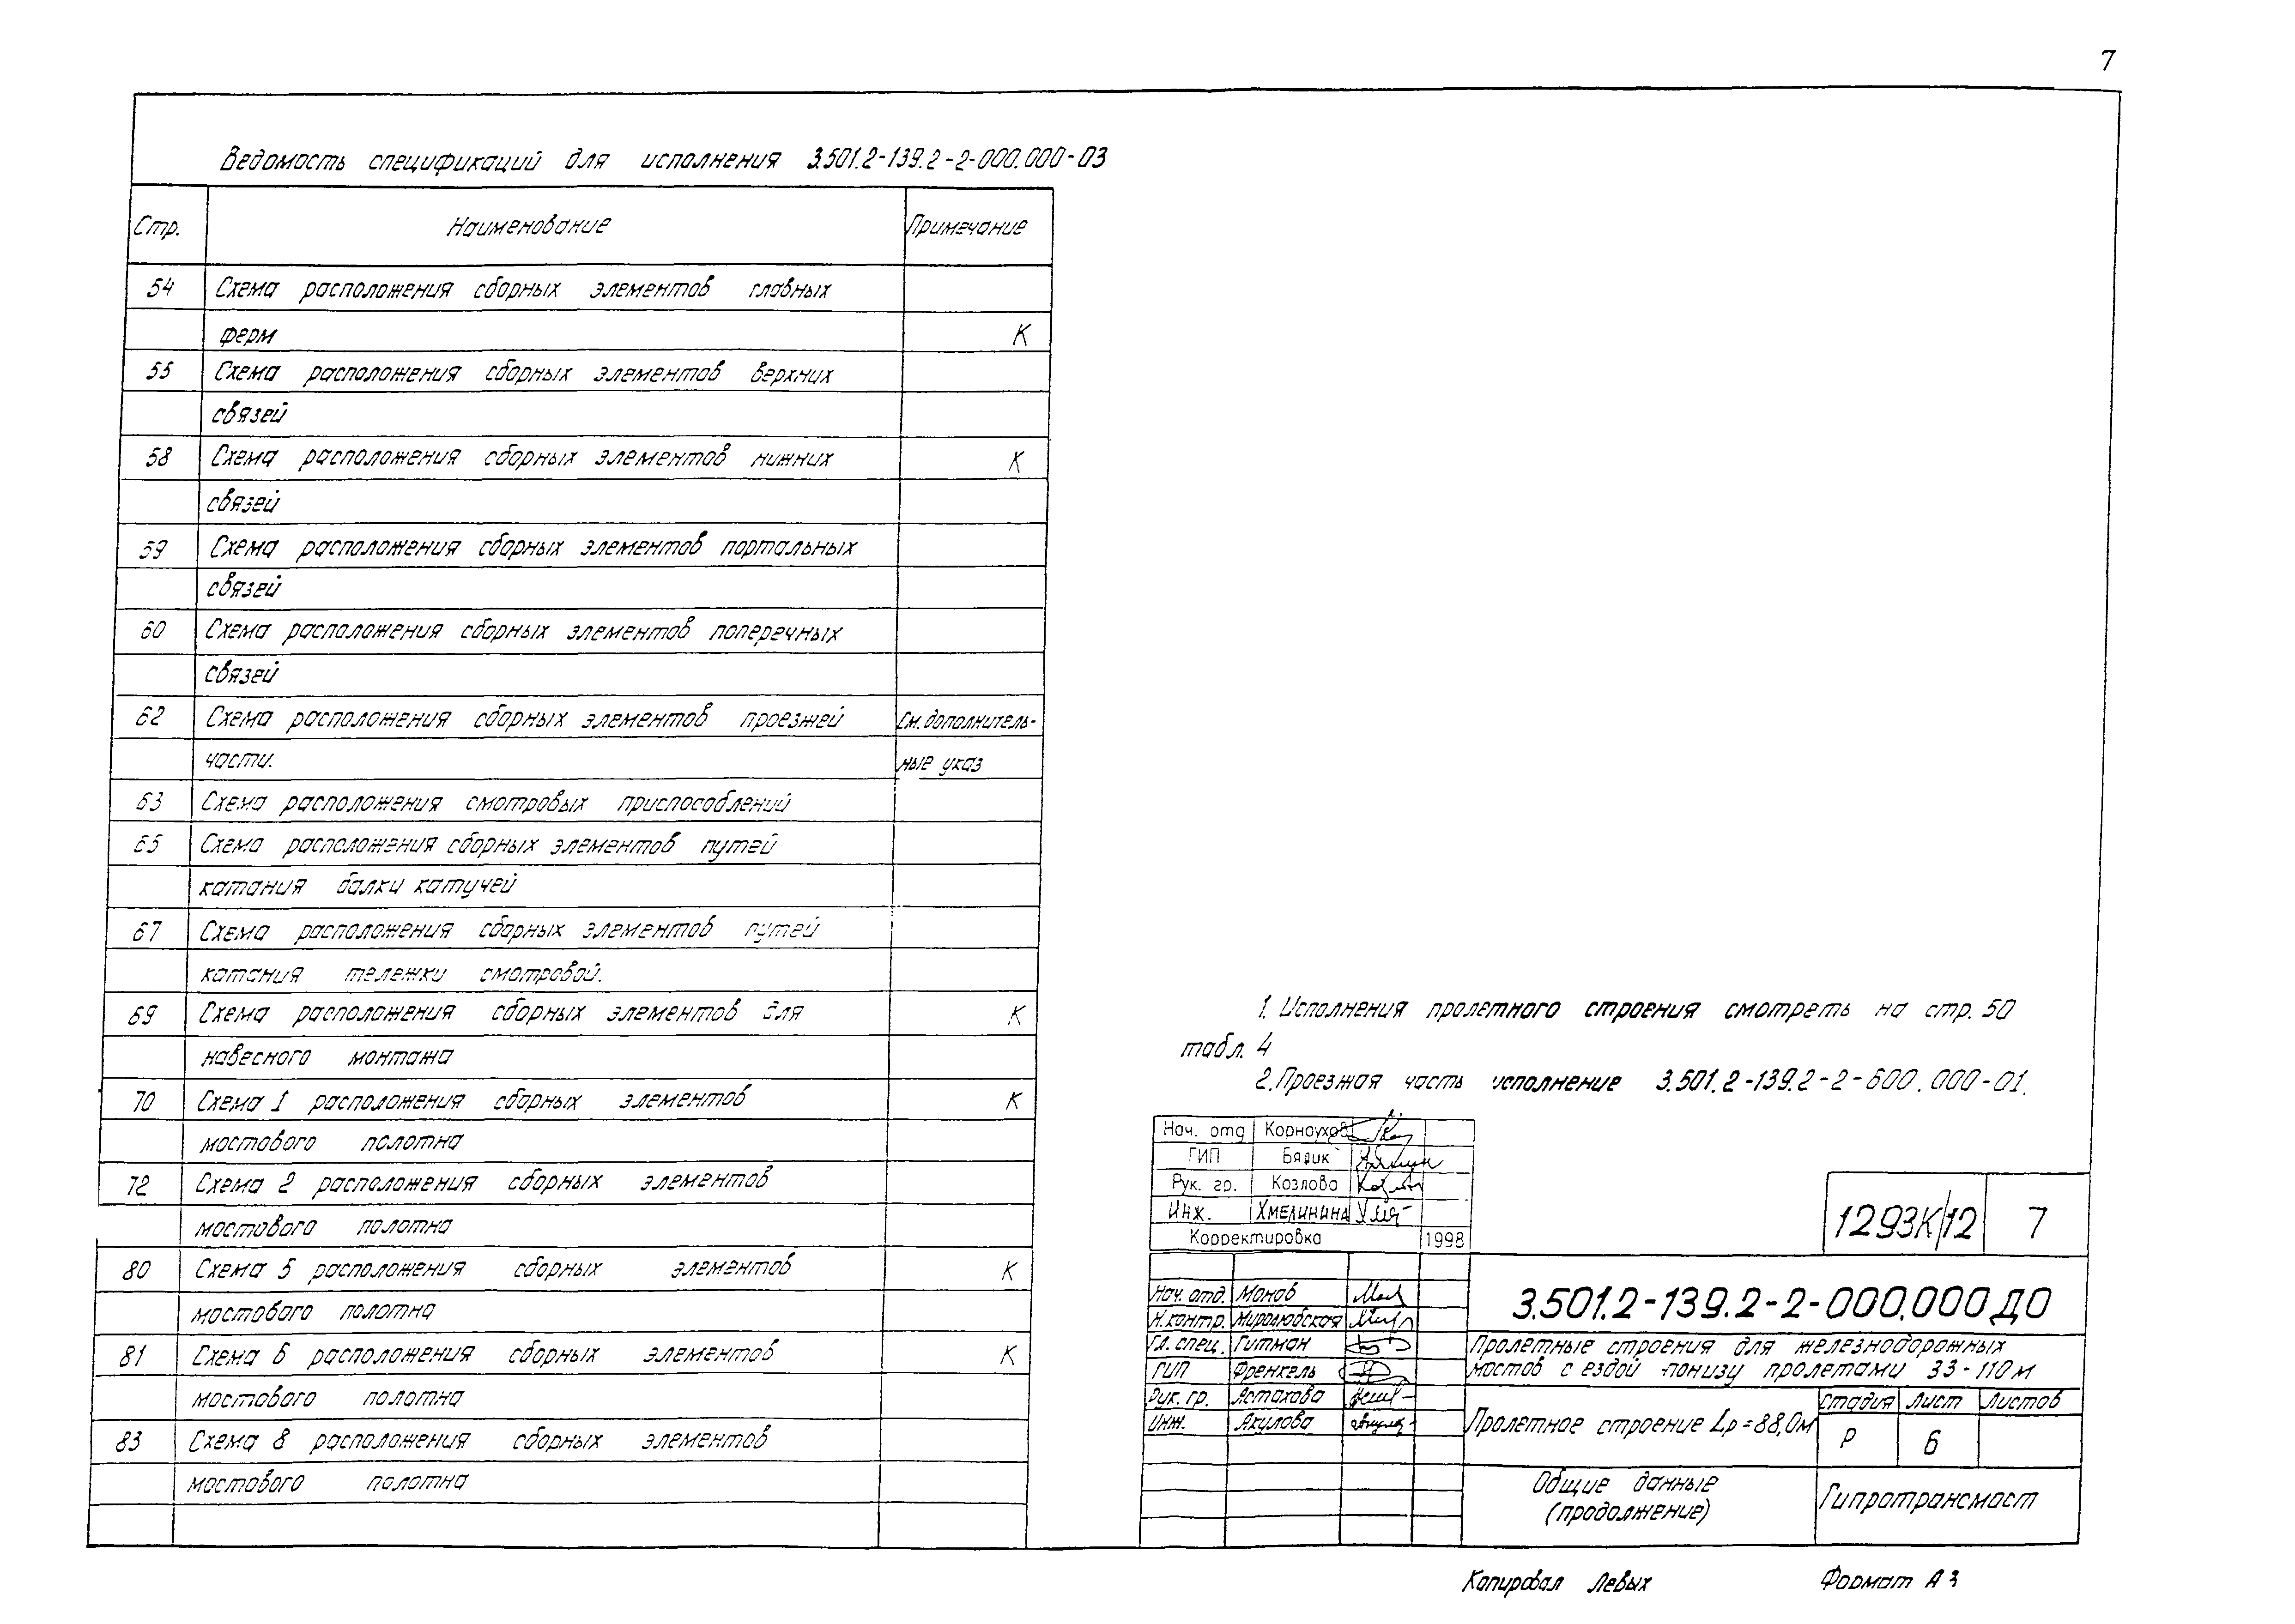 7
Ведомость спецификаций для исполнения 3.501.2-139.2-2-000.000-03
Стр. Наименование Примечание
54 Схема расположения сборных элементов главных
ферм К
55 Схема расположения сборных элементов верхних
связей
58 Схема расположения сборных элементов нижних К
связей
59 Схема расположения сборных элементов портальных
связей
60 Схема расположения сборных элементов поперечных
связей
62 Схема расположения сборных элементов проезжей См. дополнитель-
части. ные указ
63 Схема расположения смотровых приспособлений
65 Схема расположения сборных элементов путей
катания балки катучей
67 Схема расположения сборных элементов путей
катания тележки смотровой.
69 Схема расположения сборных элементов для К
навесного монтажа
70 Схема 1 расположения сборных элементов К
мостового полотна
72 Схема 2 расположения сборных элементов
мостового полотна
80 Схема 5 расположения сборных элементов К
мостового полотна
81 Схема 6 расположения сборных элементов К
мостового полотна
83 Схема 8 расположения сборных элементов
мостового полотна
1. Исполнения пролетного строения смотреть на стр. 50
табл. 4
2. Проезжая часть исполнение 3.501.2-139.2-2-600.000-01.
Нач. отд Корноухов
ГИП Бядик
Рук. гр. Козлова
Инж. Хмелинина
Корректировка 1998
1293К/12 7
Нач. отд. Монов
Н.контр. Миролюбская
Гл. спец. Гитман
ГИП Френкель
Рук. гр. Астахова
Инж. Акулова
3.501.2-139.2-2-000.000 ДО
Пролетные строения для железнодорожных
мостов с ездой понизу пролетами 33-110 м
Пролетное строение Lр = 88,0м
Стадия Лист Листов
Р 6
Общие данные
(продолжение)
Гипротрансмост
Копировал Левых Формат А3